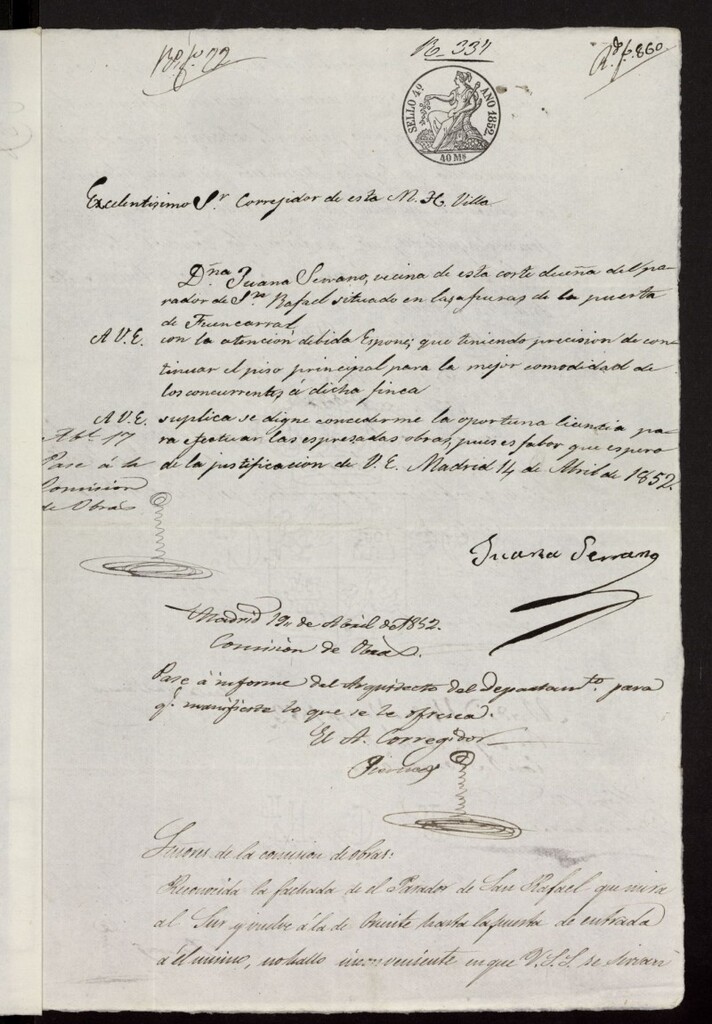 R. 334
Rdo fo. 860
SELLO 4º AÑO 1852.
40 Ms
Excelentisimo Sr Correjidor de esta M. H. Villa
Dña Juana Serrano, vecina de esta corte dueña del pa-
rador de Sn Rafael situado en las afueras de la puerta
de Fuencarral
A V.E. con la atencion debida Espone; que teniendo precision de con-
tinuar el piso principal para la mejor comodidad de
los concurrentes á dicha finca
A V.E. suplica se digne concederme la oportuna licencia pa-
ra efectuar las espresadas obras, pues es fabor que espera
de la justificacion de V.E. Madrid 14 de Abril de 1852.
Abl. 17
Pase á la
Comision
de Obras
Juana Serrano
Madrid 19 de Abril de 1852.
Comision de Obras.
Pase á informe del Arquitecto del Departamto. para
q.e manifieste lo que se le ofresca.
El A. Corregidor
Señores de la comision de obras:
Reconocida la fachada de el Parador de San Rafael que mira
al Sur y vuelve á la de Oriente hasta la puerta de entrada
á el mismo, no hallo inconveniente en que V.S.S. se sirvan